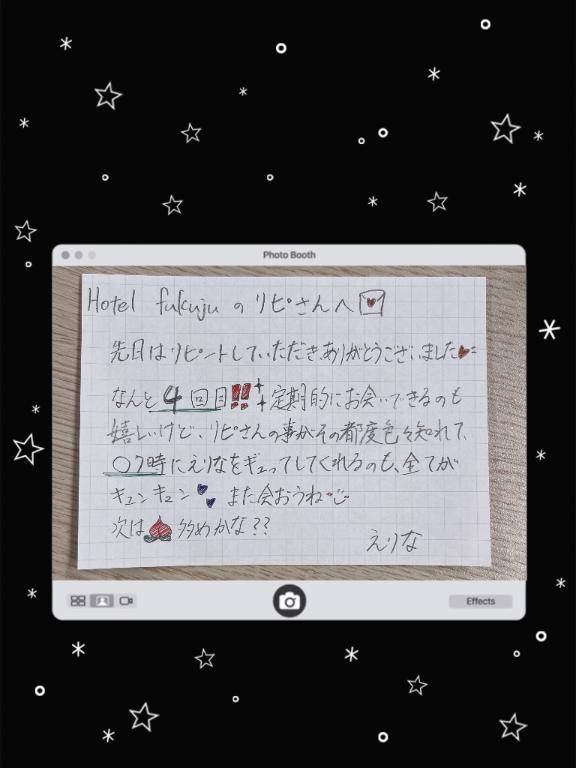 Photo Booth
Hotel fukuju の リピさんへ
先日はリピートしていただきありがとうございました
なんと4回目!! 定期的にお会いできるのも
嬉しいけど、リピさんの事がその都度色々知れて、
〇ワ時にえりなをギュってしてくれるのも、全てが
キュンキュン また会おうね
次は 多めかな??
えりな
Effects